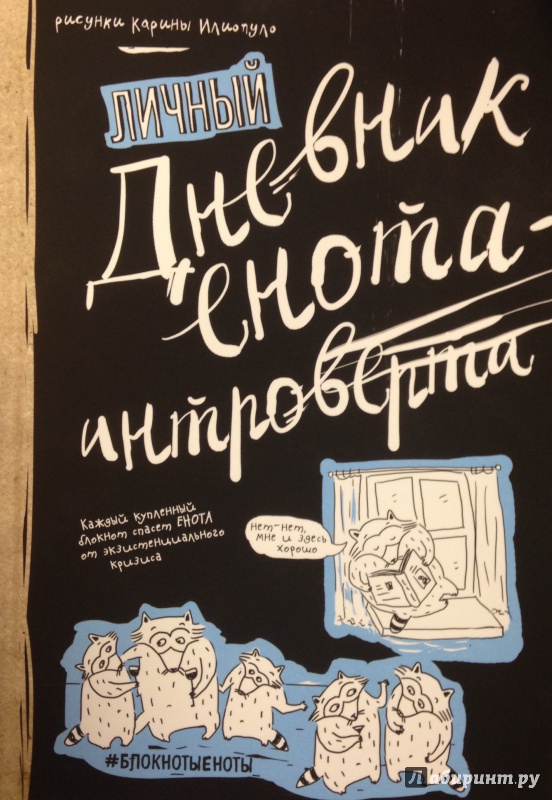 рисунки Карины Илиопуло
ЛИЧНЫЙ
Дневник
енота-
интроверта
Каждый купленный
блокнот спасет ЕНОТА
от экзистенциального
кризиса
нет-нет,
мне и здесь
хорошо
#БЛОКНОТЫЕНОТЫ
Лабиринт.ру